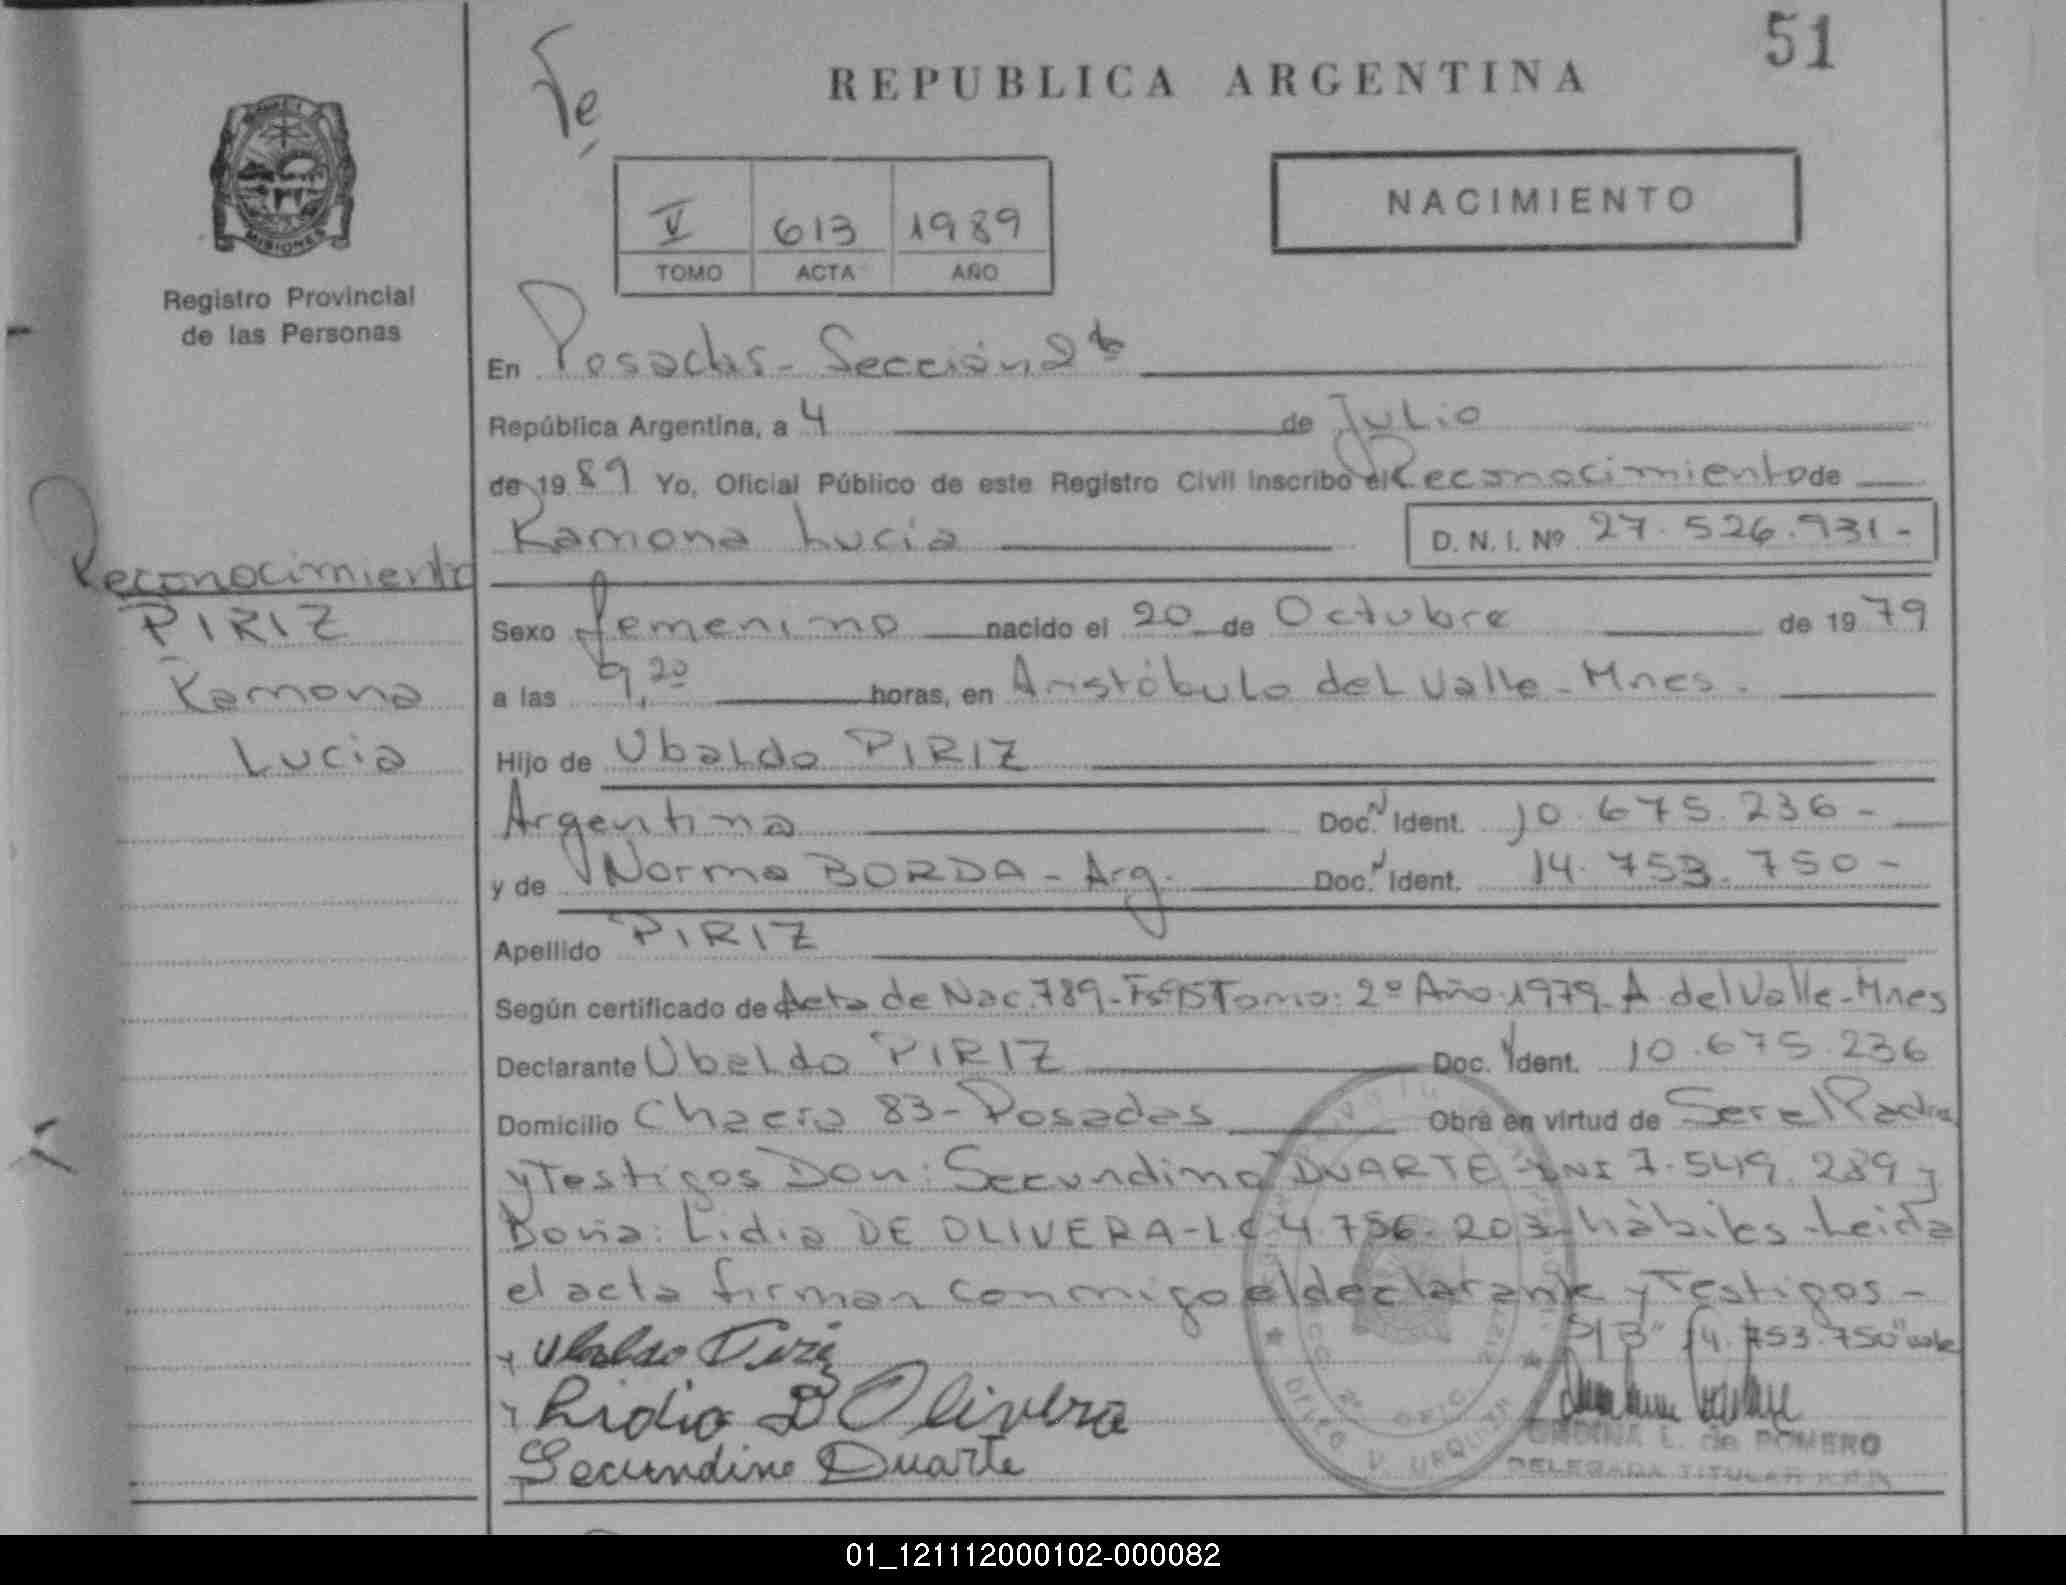 51
Fe
REPUBLICA ARGENTINA
NACIMIENTO
V 613 1989
TOMO ACTA AÑO
MISIONES
Registro Provincial
de las Personas
Reconocimiento
PIRIZ
Ramona
Lucia
En Posadas - Sección 2da
República Argentina, a 4 de Julio
de 19 89 Yo, Oficial Público de este Registro Civil inscribo el Reconocimiento de
Ramona Lucia D. N. I. Nº 27.526.931-
Sexo femenino nacido el 20 de Octubre de 19 79
a las 9,20 horas, en Aristóbulo del Valle - Mnes.
Hijo de Ubaldo PIRIZ
Argentina Doc. Ident. 10.675.236-
y de Norma BORDA - Arg. Doc. Ident. 14.753.750-
Apellido PIRIZ
Según certificado de Acta de Nac. 789 - Tomo: 2º Año 1979 - A. del Valle - Mnes
Declarante Ubaldo PIRIZ Doc. Ident. 10.675.236
Domicilio Chacra 83 - Posadas Obra en virtud de Ser el Padre
y Testigos Don: Secundino DUARTE - DNI 7.549.289 y
Doña: Lidia DE OLIVERA - LC 4.756.203 - hábiles - Leida
el acta firman conmigo el declarante y Testigos -
S/B "14.753.750" vale
Ubaldo Piriz
Lidia D Olivera
Secundino Duarte
L. de ROMERO
DELEGADA TITULAR
01_121112000102-000082